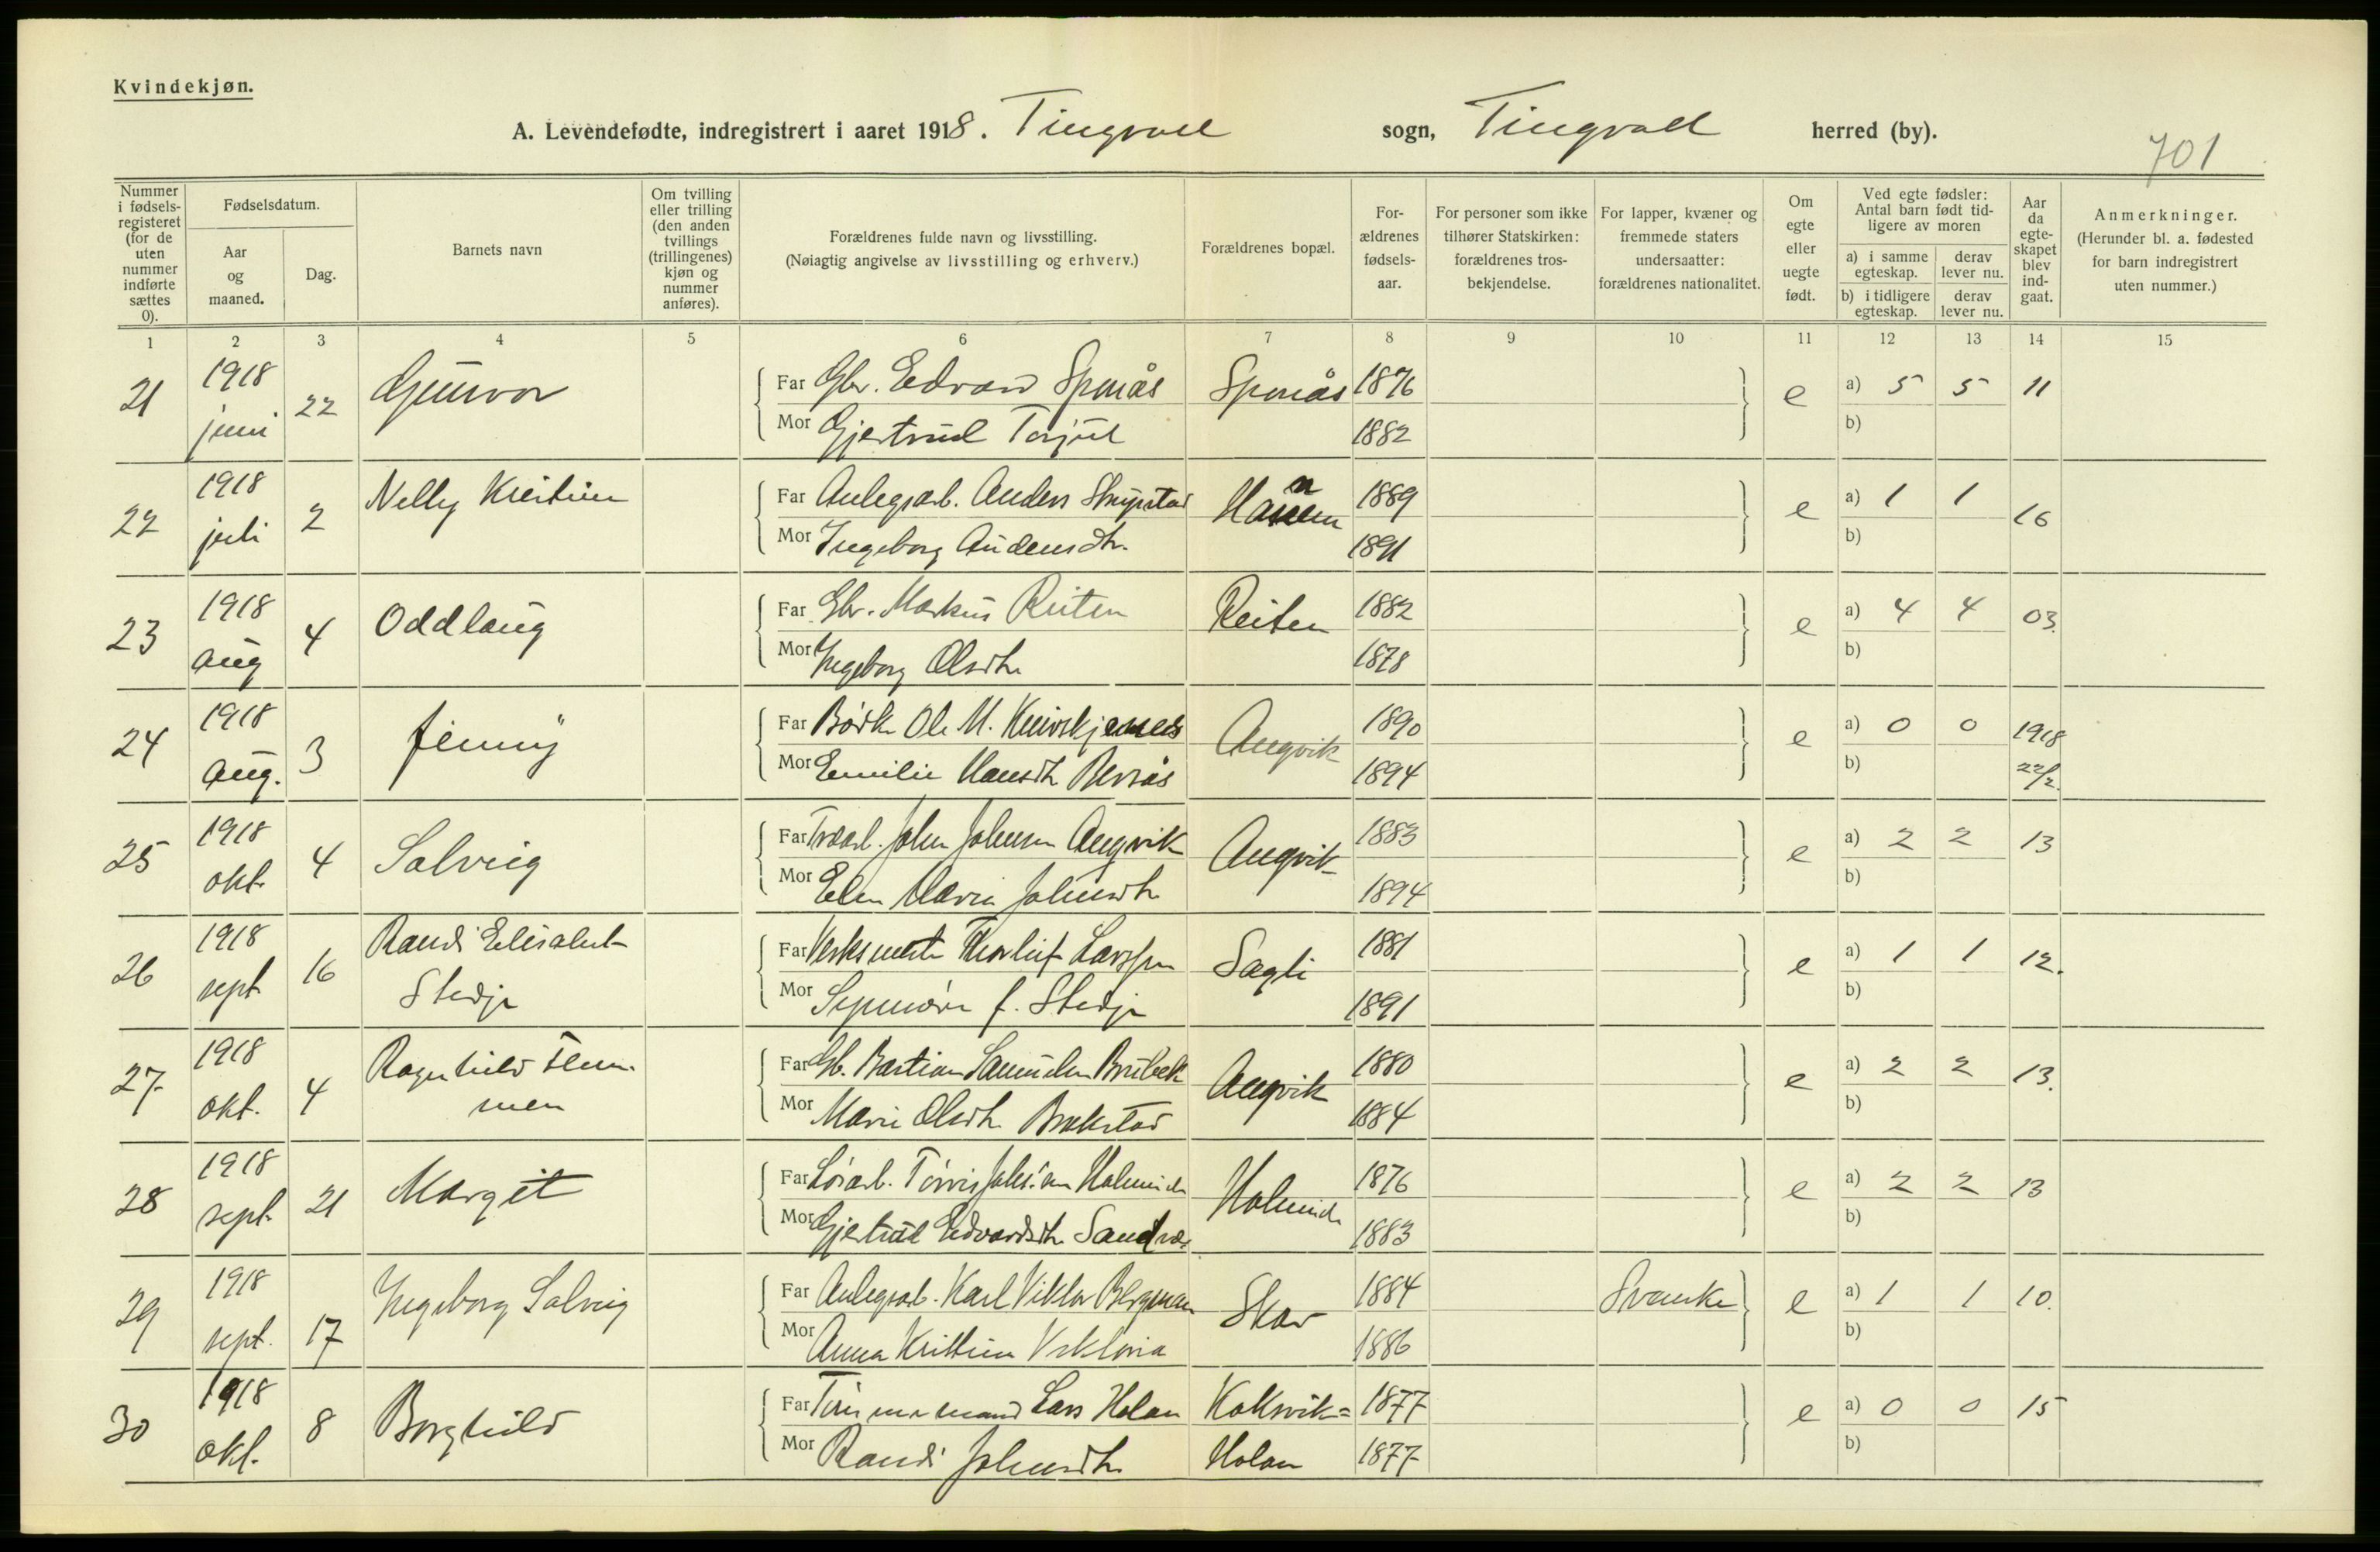 Kvindekjøn.
A. Levendefødte, indregistrert i aaret 1918. Tingvoll sogn, Tingvoll herred (by).
701
Nummer i fødsels-registeret (for de uten nummer indførte sættes 0).
Fødselsdatum.
Aar og maaned.
Dag.
Barnets navn
Om tvilling eller trilling (den anden tvillings (trillingenes) kjøn og nummer anføres).
Forældrenes fulde navn og livsstilling.
(Nøiagtig angivelse av livsstilling og erhverv.)
Forældrenes bopæl.
For-ældrenes fødsels-aar.
For personer som ikke tilhører Statskirken: forældrenes tros-bekjendelse.
For lapper, kvæner og fremmede staters undersaatter: forældrenes nationalitet.
Om egte eller uegte født.
Ved egte fødsler: Antal barn født tid-ligere av moren
a) i samme egteskap.
derav lever nu.
b) i tidligere egteskap.
derav lever nu.
Aar da egte-skapet blev ind-gaat.
Anmerkninger.
(Herunder bl. a. fødested for barn indregistrert uten nummer.)
1 2 3 4 5 6 7 8 9 10 11 12 13 14 15
21 1918 juni 22 Gunvor Far Gbr. Edvard 1876 e a) 5 5 11
Mor Gjertrud 1882 b)
22 1918 juli 2 Nelly Kristine Far Anlegsarb. Anders Hanem 1889 e a) 1 1 16
Mor Ingeborg Andersdtr. 1891 b)
23 1918 aug 4 Oddlaug Far Gbr. Markus Reiten Reiten 1882 e a) 4 4 03.
Mor Ingeborg Olsdtr 1878 b)
24 1918 aug. 3 Jenny Far Ole M. Angvik 1890 e a) 0 0 1918
Mor Emilie Hansdtr 1894 b) 22/2.
25 1918 okt. 4 Solveig Far John Johnsen Angvik Angvik 1883 e a) 2 2 13
Mor Elen Maria Johnsdtr 1894 b)
26 1918 sept 16 Randi Elisabet Stedje Far Verksmester Thorleif Larssen Sagli 1881 e a) 1 1 12.
Mor f. Stedje 1891 b)
27 1918 okt. 4 Ragnhild Flem-men Far Bastian Angvik 1880 e a) 2 2 13.
Mor Marie Olsdtr 1884 b)
28 1918 sept. 21 Margit Far 1876 e a) 2 2 13
Mor Gjertrud Edvardsdtr 1883 b)
29 1918 sept. 17 Ingeborg Solveig Far Anlegsarb. Karl Viktor Bergman Skar 1884 Svenske e a) 1 1 10.
Mor Anna Kristina Viktoria 1886 b)
30 1918 okt. 8 Borghild Far Tømmermand Lars Holan Koksvik= 1877 e a) 0 0 15
Mor Randi Johnsdtr Holan 1877 b)